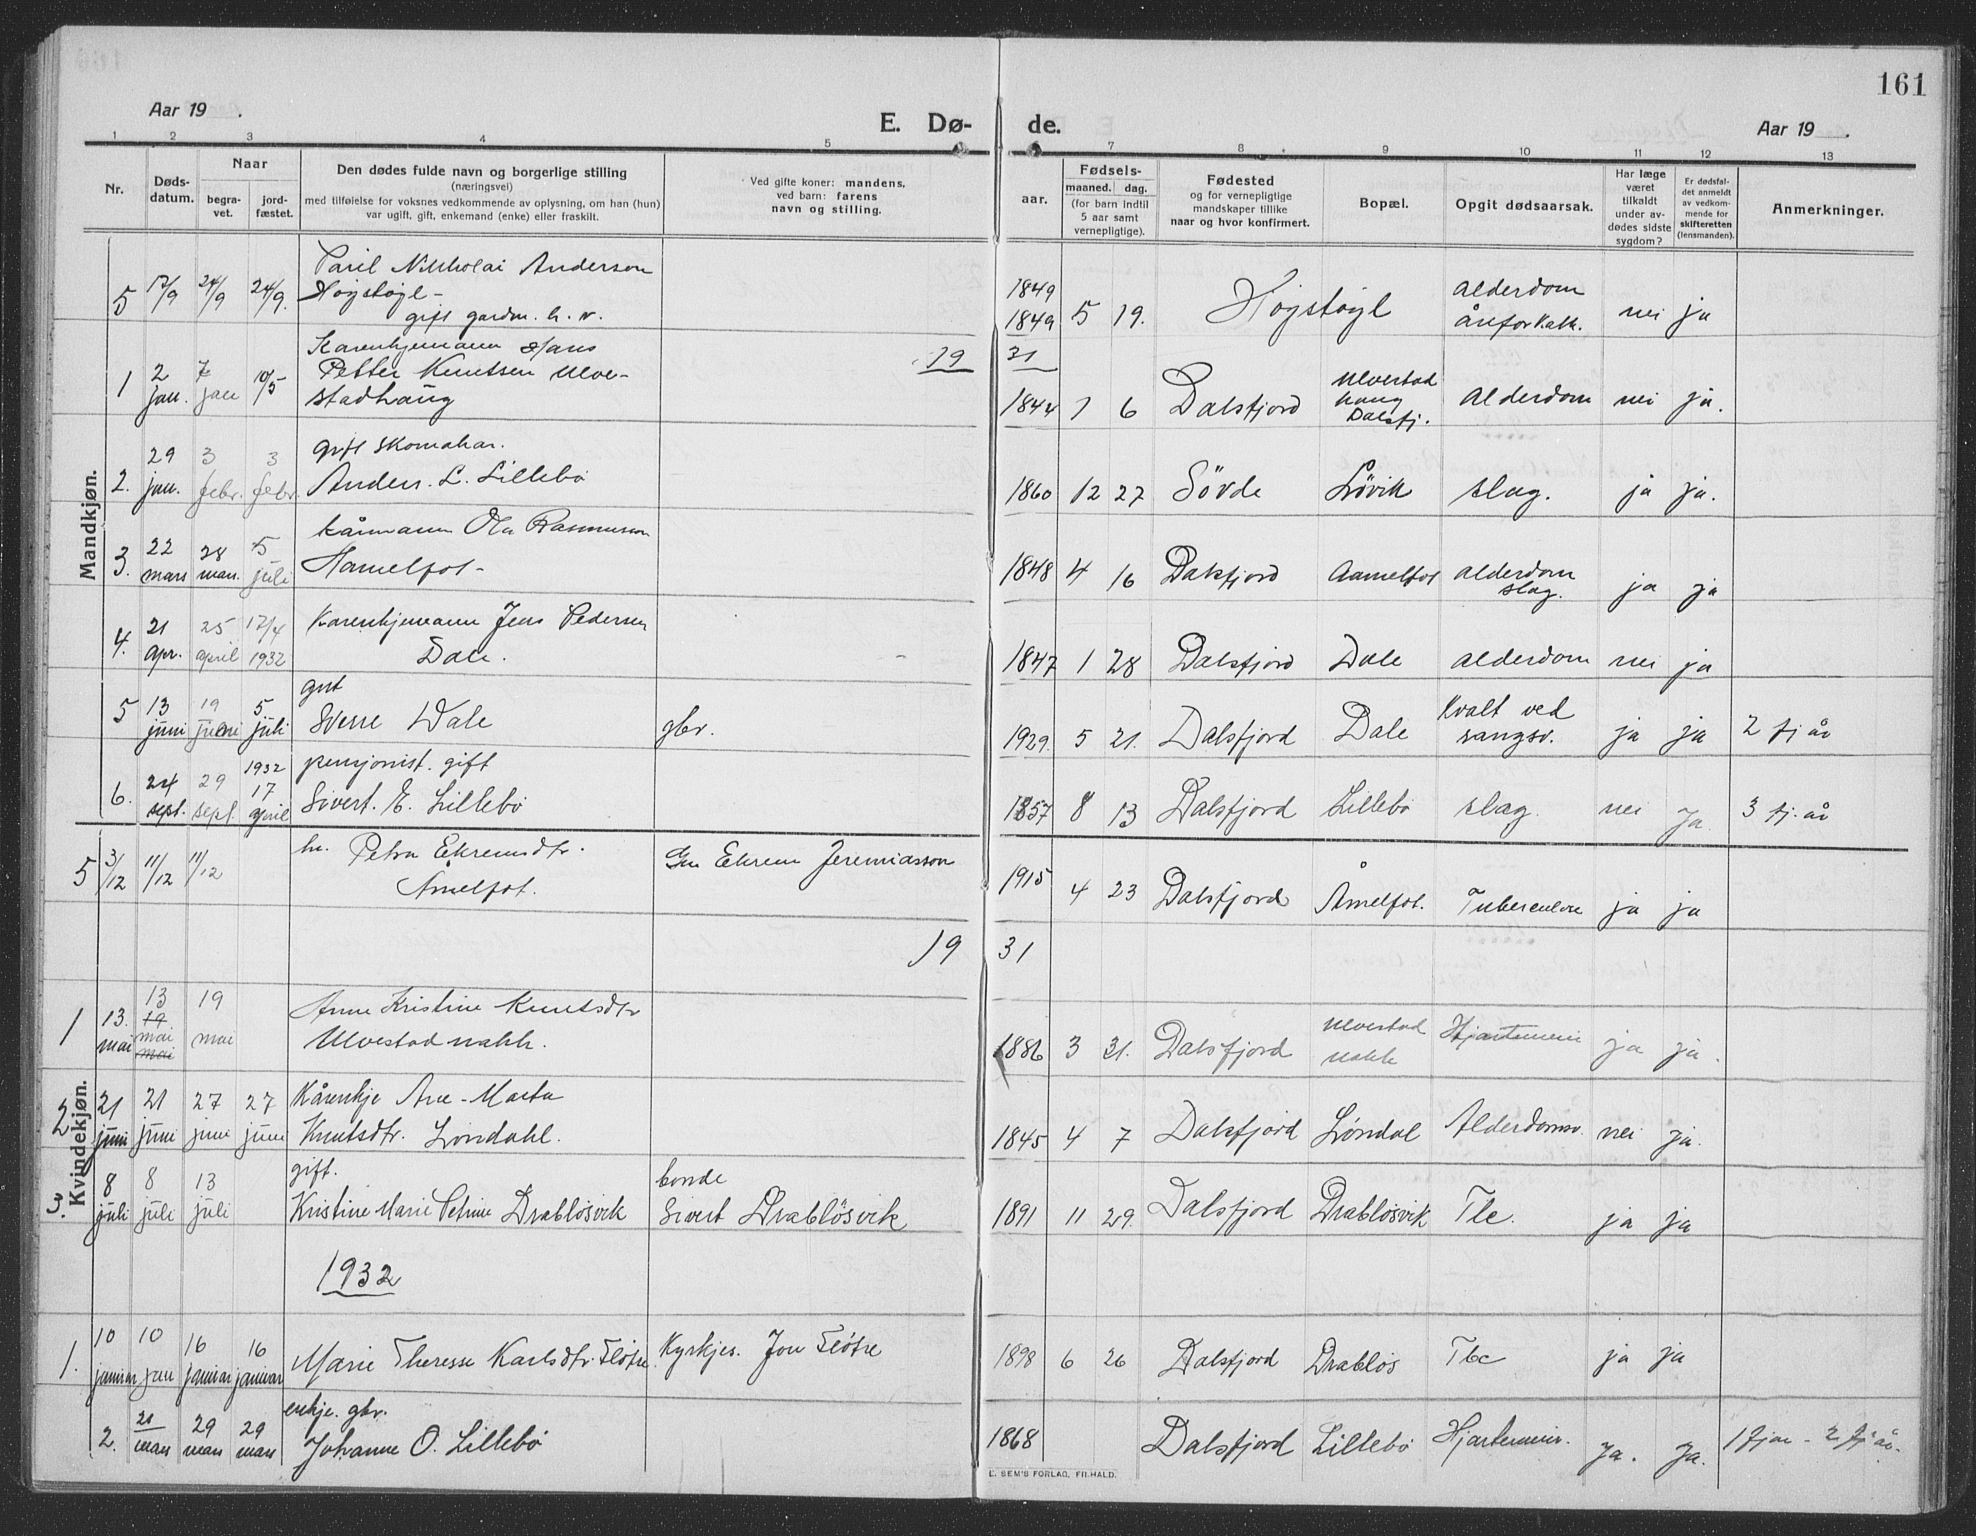 161
Aar 19 .
E. Dø- de.
Aar 19 .
1 2 3 4 5 7 8 9 10 11 12 13
Nr.
Døds-
datum.
Naar
begra-
vet.
jord-
fæstet.
Den dødes fulde navn og borgerlige stilling
(næringsvei)
med tilføielse for voksnes vedkommende av oplysning, om han (hun)
var ugift, gift, enkemand (enke) eller fraskilt.
Ved gifte koner: mandens,
ved barn: farens
navn og stilling.
aar.
Fødsels-
maaned. dag.
(for barn indtil
5 aar samt
vernepligtige).
Fødested
og for vernepligtige
mandskaper tillike
naar og hvor konfirmert.
Bopæl.
Opgit dødsaarsak.
Har læge
været
tilkaldt
under av-
dødes sidste
sygdom?
Er dødsfal-
det anmeldt
av vedkom-
mende for
skifteretten
(lensmanden).
Anmerkninger.
Mandkjøn.
5 17/9 24/9 24/9. Nikkolai Anderson
Høgstøyl-
gift gardm. h. v.
1849
1849 5 19. Høgstøyl alderdom
åreforkalk. nei ja
19 31
1 2 jan. 7 jan 10/5 Kårenkjemann Hans
Petter Knutsen Ulve-
stadhaug
1844 1 6 Dalsfjord Ulvestad
haug
Dalsfj. alderdom nei ja.
2. 29 jan. 3 febr. 3 febr. gift skomakar.
Anders. L. Lillebø
1860 12 27 Søvde Løvik slag. ja ja.
3. 22 mars 28 mars. 5 juli kårmann Ola Rasmusson
Hamelfot-
1848 4 16 Dalsfjord Aamelfot alderdom
slag. ja ja
4. 21 apr. 25 april 17/4 1932 Kårenkjemann Jens Pedersen
Dale.
1847 1 28 Dalsfjord Dale alderdom nei ja
5 13 juni 19 juni 5 juli gut
Sverre Dale gbr.
1929. 5 21. Dalsfjord Dale Kvalt ved
sangsv. ja ja 2 fj år
6. 24 sept. 29 sept. 1932 17 april pensjonist. gift
Sivert. E. Lillebø
1857 8 13 Dalsfjord Lillebø slag. nei ja 3 fj. år
Kvindekjøn.
5 3/12 11/12 11/12 Petra Ekremsdtr.
Åmelfot. Ekrem Jeremiasson
1915 4 23 Dalsfjord Åmelfot. Tuberculose ja ja
19 31
1 13. mai 13 19 mai mai 19 mai Anne Kristine Knutsdtr
Ulvestadnakk.
1886 3 31. Dalsfjord Ulvestad
nakk Hjartemein ja ja.
2 21 juni 21 juni 27 juni 27 juni Kårenkje Ane-Marta
Knutsdtr. Løndahl.
1845 4 7 Dalsfjord Løndal Alderdomsv. nei ja.
3. 8 juli 8 juli 13 juli gift.
Kristine Marie Petrine Drabløsvik bonde
Sivert Drabløsvik
1891 11 29. Dalsfjord Drabløsvik Tbc. ja ja
1932
1. 10 januar 10 jan 16 januar 16 januar Marie Theresse Karlsdtr. Fløtre Kyrkjes. Jon Fløtre
1898 6 26 Dalsfjord Drabløs Tbc ja ja
2. 21 mars 29 mars 29 mars enkje. gbr.
Johanne O. Lillebø
1868 Dalsfjord Lillebø Hjartemein. Ja. Ja. 2 fj år.
E. SEM'S FORLAG, FR.HALD.